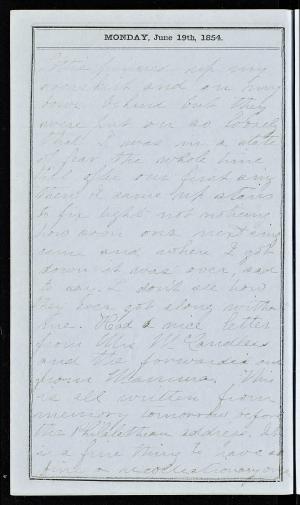 MONDAY, June 19th, 1854.
up my
overskirt and on my
bow behind but they
were put on so loosely
that I was in a state
of fear the whole time
till after our first song
then I came up stairs
to fix tight not noticing
how soon our next song
came and when I got
down it was over, sad
to say. I don't see how
they ever got along without
me. Had a nice letter
from Mrs McCandless
and the forwarded one
from Mamma. This
is all written from
memory tomorrow before
the Philalethean address. It
is a fine thing to have so
fine a recollectionary